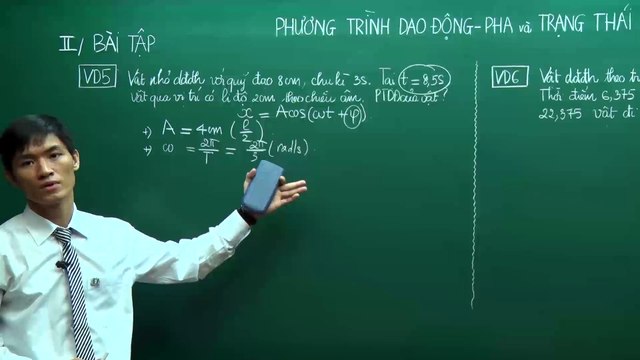 PHƯƠNG TRÌNH DAO ĐỘNG - PHA và TRẠNG THÁI
II/ BÀI TẬP
VD5 Vật nhỏ dđđh với quỹ đạo 8cm, chu kì 3s. Tại t = 8,5s
vật qua vị trí có li độ 2cm theo chiều âm. PTDĐ của vật?
x = Acos(ωt + φ)
+) A = 4cm (ℓ/2)
+) ω = 2π/T = 2π/3 (rad/s).
VD6 Vật dđđh theo tr
Thời điểm 6,375
22,375 vật đi